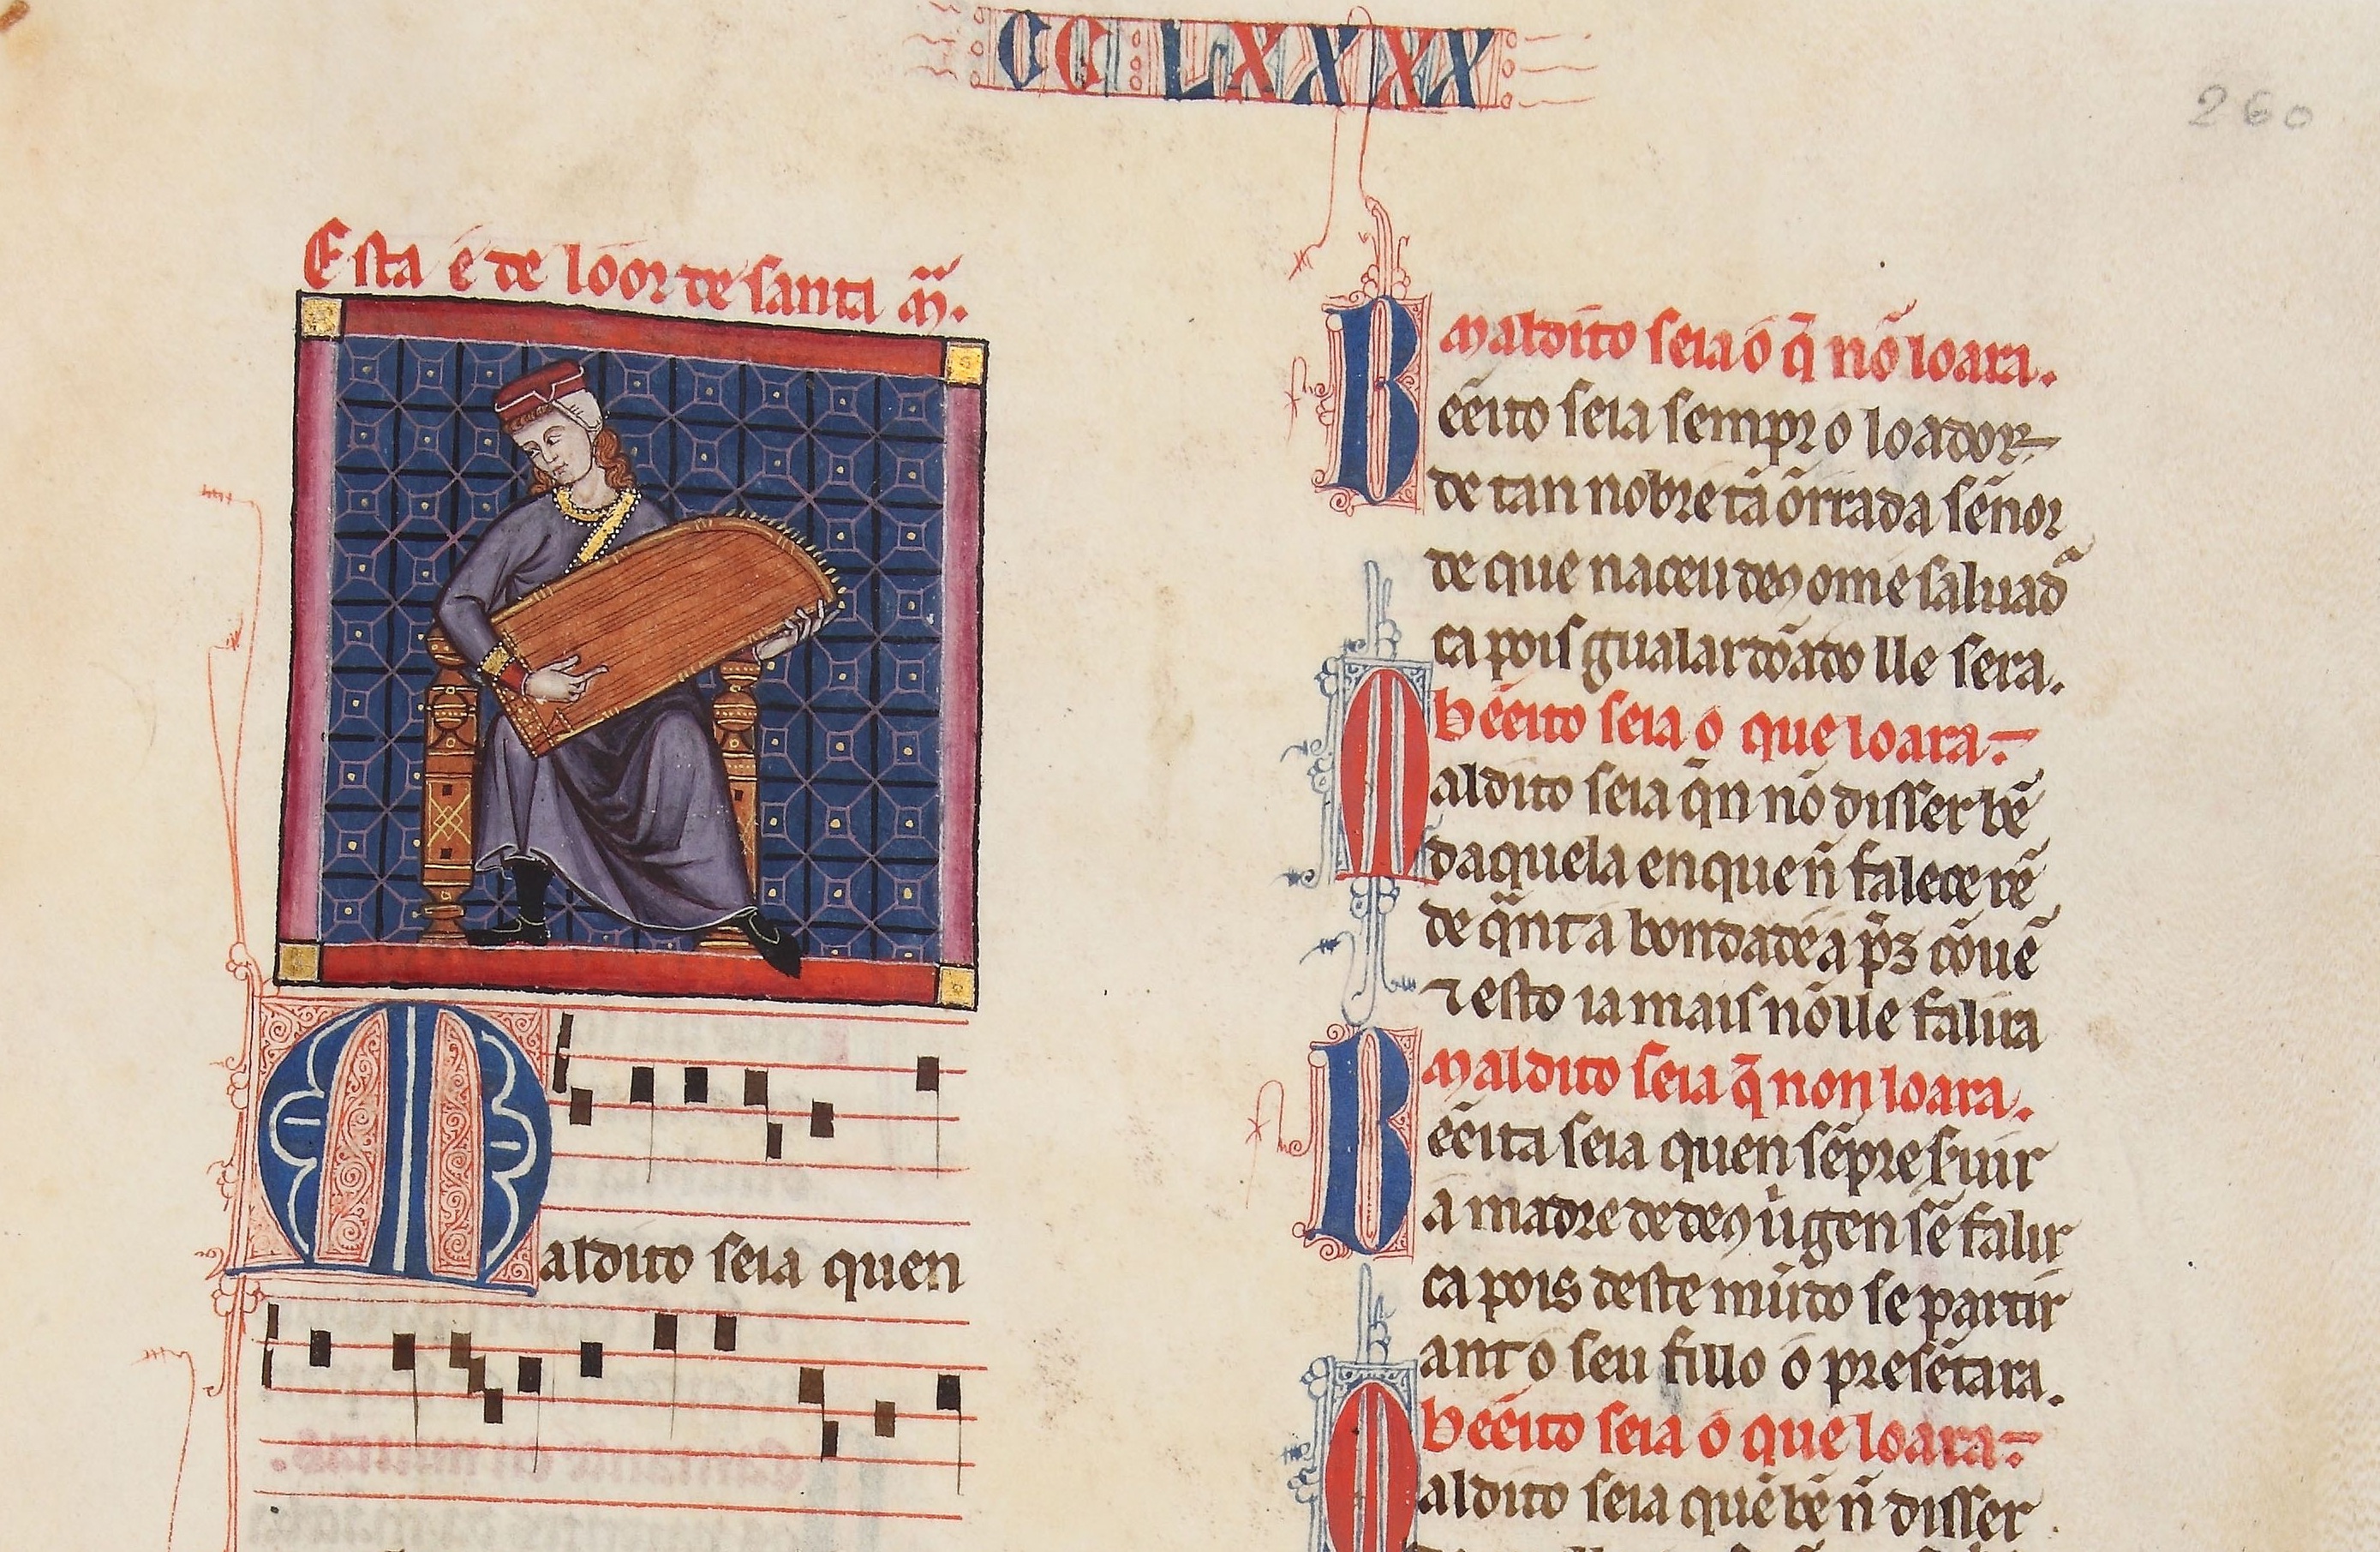 CC LXXXX
260
Esta é de lóor de santa m̃.
Maldito seia quen
maldito seia o q̄ nō loara.
Bẽeito seia sempr o loador
de tan nobre tã õrrada sẽnor
de que naceu deꝯ ome saluad
ca pois gualardõado lle sera.
bẽeito seia o que loara.
Maldito seia q̄n nō disser bẽ
daquela en que ñ falece rẽ
de q̃nta bondadé a p̃z cõuẽ
⁊ esto ia mais nõ lle falira
maldito seia q̄ non loara.
Bẽeita seia quen sẽpre s̃uir
a madre de deꝯ uigen sẽ falir
ca pois deste mũdo se partir
ant o seu fillo o presẽtara.
bẽeito seia o que loara.
Maldito seia quẽ bẽ ñ disser